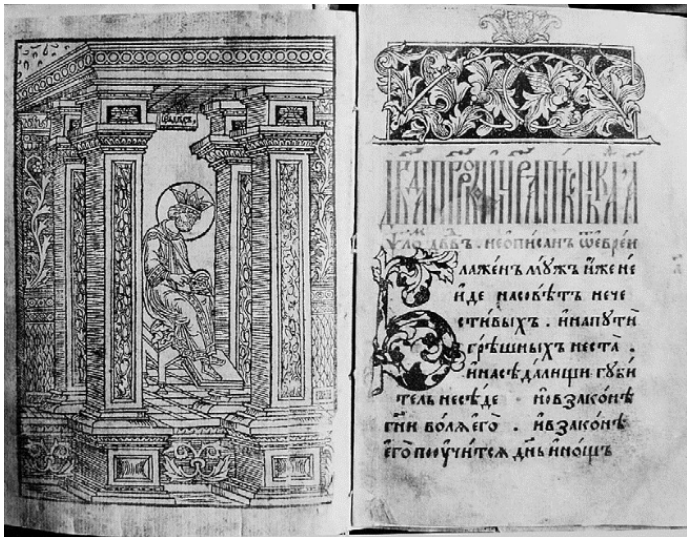 ѱало́мъ д҃вдвъ . неѡпи́санъ ѿеврѐи
Блаже́нъ мꙋ́жъ и҆́же не
и҆́де насовѣ́тъ нече
сти́выхъ . и҆напꙋтѝ
грѣ́шныхъ неста̀ .
и҆насѣда́лищи гꙋби́
тель несѣ́де и҆овзако́нѣ
гн҃и во́лѧ є҆гѡ̀ . и҆взако́нѣ
є҆гѡ̀ поꙋчи́тсѧ дн҃ь и҆но́щь